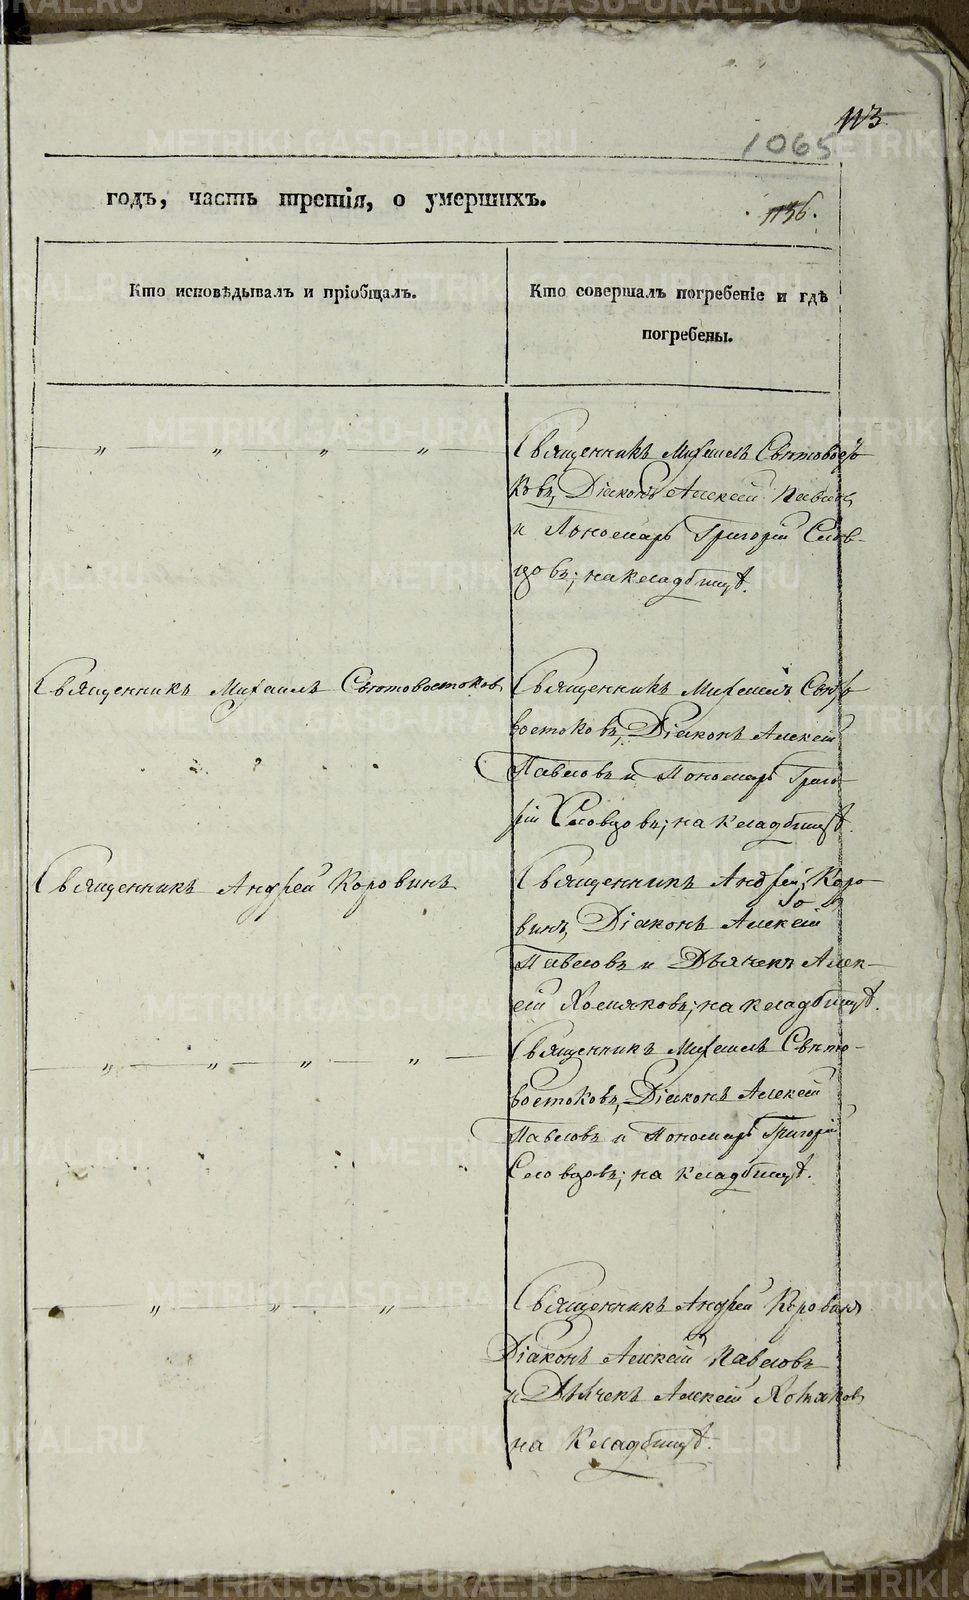 113
1065
1136.
годъ, часть третія, о умершихъ.
Кто исповѣдывалъ и пріобщалъ.
Кто совершалъ погребеніе и гдѣ
погребены.
— „ — „ — „ — „ —
Священникъ Михаилъ Свѣтовосто
ковъ, Діаконъ Алексей Павловъ
и Пономарь Григорій Слов-
цовъ; на кладбищѣ.
Священникъ Михаилъ Свѣтовостоковъ
Священникъ Михаилъ Свѣто
востоковъ, Діаконъ Алексей
Павловъ и Пономарь Григо-
рій Словцовъ; на кладбищѣ.
Священникъ Андрей Коровинъ
Священникъ Андрей Коро
винъ, Діаконъ Алексій
Павловъ и Дьячекъ Алек-
сій Хомяковъ; на кладбищѣ.
— „ — „ — „ — „ —
Священникъ Михаилъ Свѣто-
востоковъ, Діаконъ Алексей
Павловъ и Пономарь Григорій
Словцовъ; на кладбищѣ.
— „ — „ — „
Священникъ Андрей Коровинъ
Діаконъ Алексій Павловъ
и Дьячекъ Алексій Хомяковъ
на Кладбищѣ.
METRIKI.GASO-URAL.RU